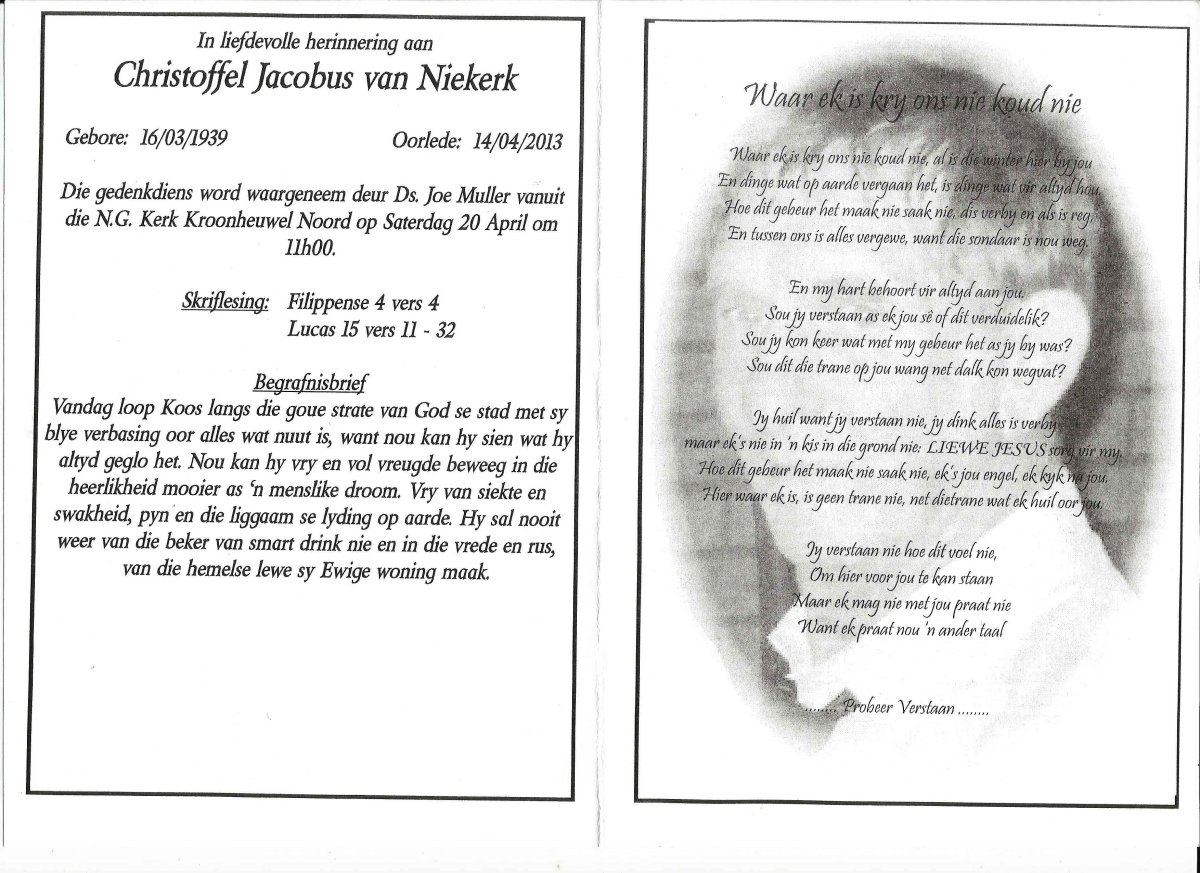 In liefdevolle herinnering aan
Christoffel Jacobus van Niekerk
Gebore: 16/03/1939 Oorlede: 14/04/2013
Die gedenkdiens word waargeneem deur Ds. Joe Muller vanuit
die N.G. Kerk Kroonheuwel Noord op Saterdag 20 April om
11h00.
Skriflesing: Filippense 4 vers 4
Lucas 15 vers 11 - 32
Begrafnisbrief
Vandag loop Koos langs die goue strate van God se stad met sy
blye verbasing oor alles wat nuut is, want nou kan hy sien wat hy
altyd geglo het. Nou kan hy vry en vol vreugde beweeg in die
heerlikheid mooier as 'n menslike droom. Vry van siekte en
swakheid, pyn en die liggaam se lyding op aarde. Hy sal nooit
weer van die beker van smart drink nie en in die vrede en rus,
van die hemelse lewe sy Ewige woning maak.
Waar ek is kry ons nie koud nie
Waar ek is kry ons nie koud nie, al is die winter hier by jou
En dinge wat op aarde vergaan het, is dinge wat vir altyd hou.
Hoe dit gebeur het maak nie saak nie, dis verby en als is reg,
En tussen ons is alles vergewe, want die sondaar is nou weg.
En my hart behoort vir altyd aan jou.
Sou jy verstaan as ek jou sê of dit verduidelik?
Sou jy kon keer wat met my gebeur het as jy by was?
Sou dit die trane op jou wang net dalk kon wegvat?
Jy huil want jy verstaan nie, jy dink alles is verby
maar ek's nie in 'n kis in die grond nie: LIEWE JESUS sorg vir my.
Hoe dit gebeur het maak nie saak nie, ek's jou engel, ek kyk na jou.
Hier waar ek is, is geen trane nie, net dietrane wat ek huil oor jou.
Jy verstaan nie hoe dit voel nie,
Om hier voor jou te kan staan
Maar ek mag nie met jou praat nie
Want ek praat nou 'n ander taal
........ Probeer Verstaan ........